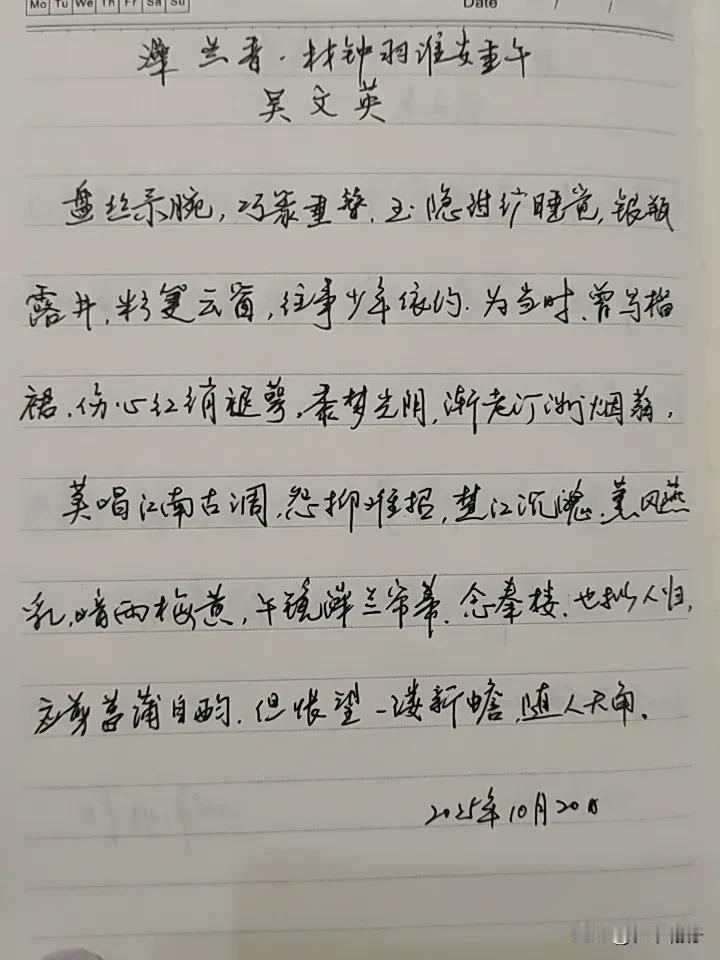 Mo Tu We Th Fr Sa Su Date / /
澡兰香·林钟羽淮安重午
吴文英
盘丝系腕,巧篆垂簪,玉隐绀纱睡觉,银瓶
露井,彩箑云窗,往事少年依约.为当时,曾写榴
裙,伤心红绡褪萼,黍梦光阴,渐老汀洲烟蒻,
莫唱江南古调,怨抑难招,楚江沉魄,薰风燕
乳,暗雨梅黄,午镜澡兰帘幕,念秦楼,也拟人归,
应剪菖蒲自酌.但怅望一缕新蟾,随人天角.
2025年10月20日